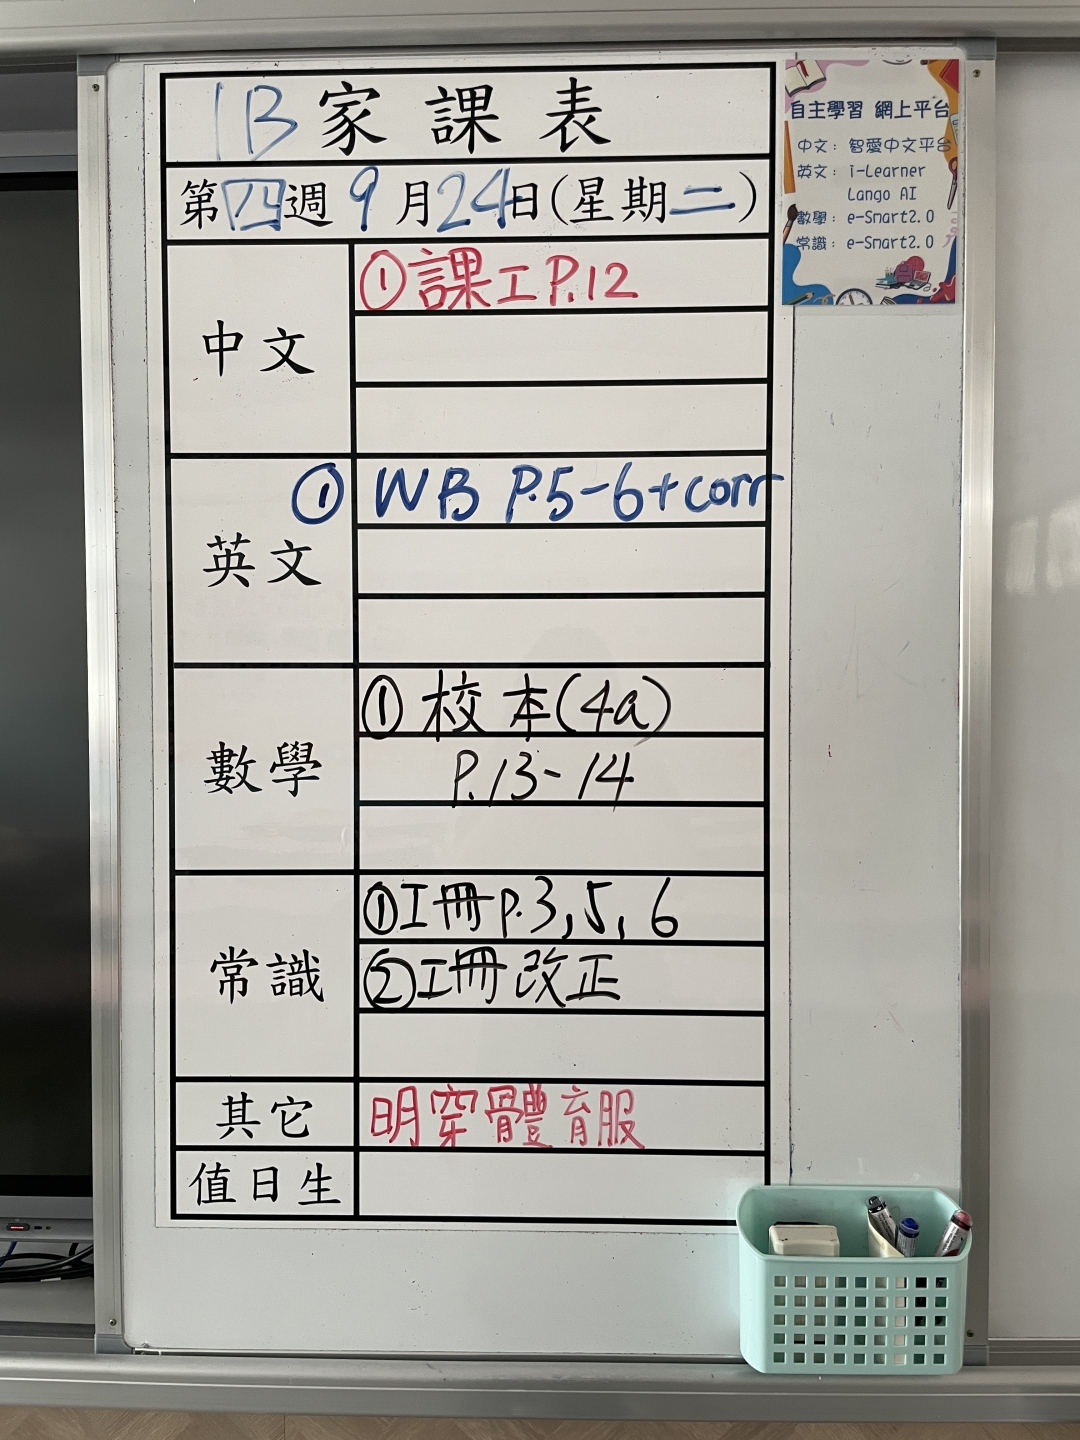 1B家課表
第四週9月24日(星期二)
中文
①課工P.12
英文
①WB P.5-6+corr
數學
①校本(4a)
P.13-14
常識
①工冊p.3,5,6
②工冊改正
其它
明穿體育服
值日生
自主學習 網上平台
中文：智愛中文平台
英文：i-Learner
Lango AI
數學：e-Smart2.0
常識：e-Smart2.0